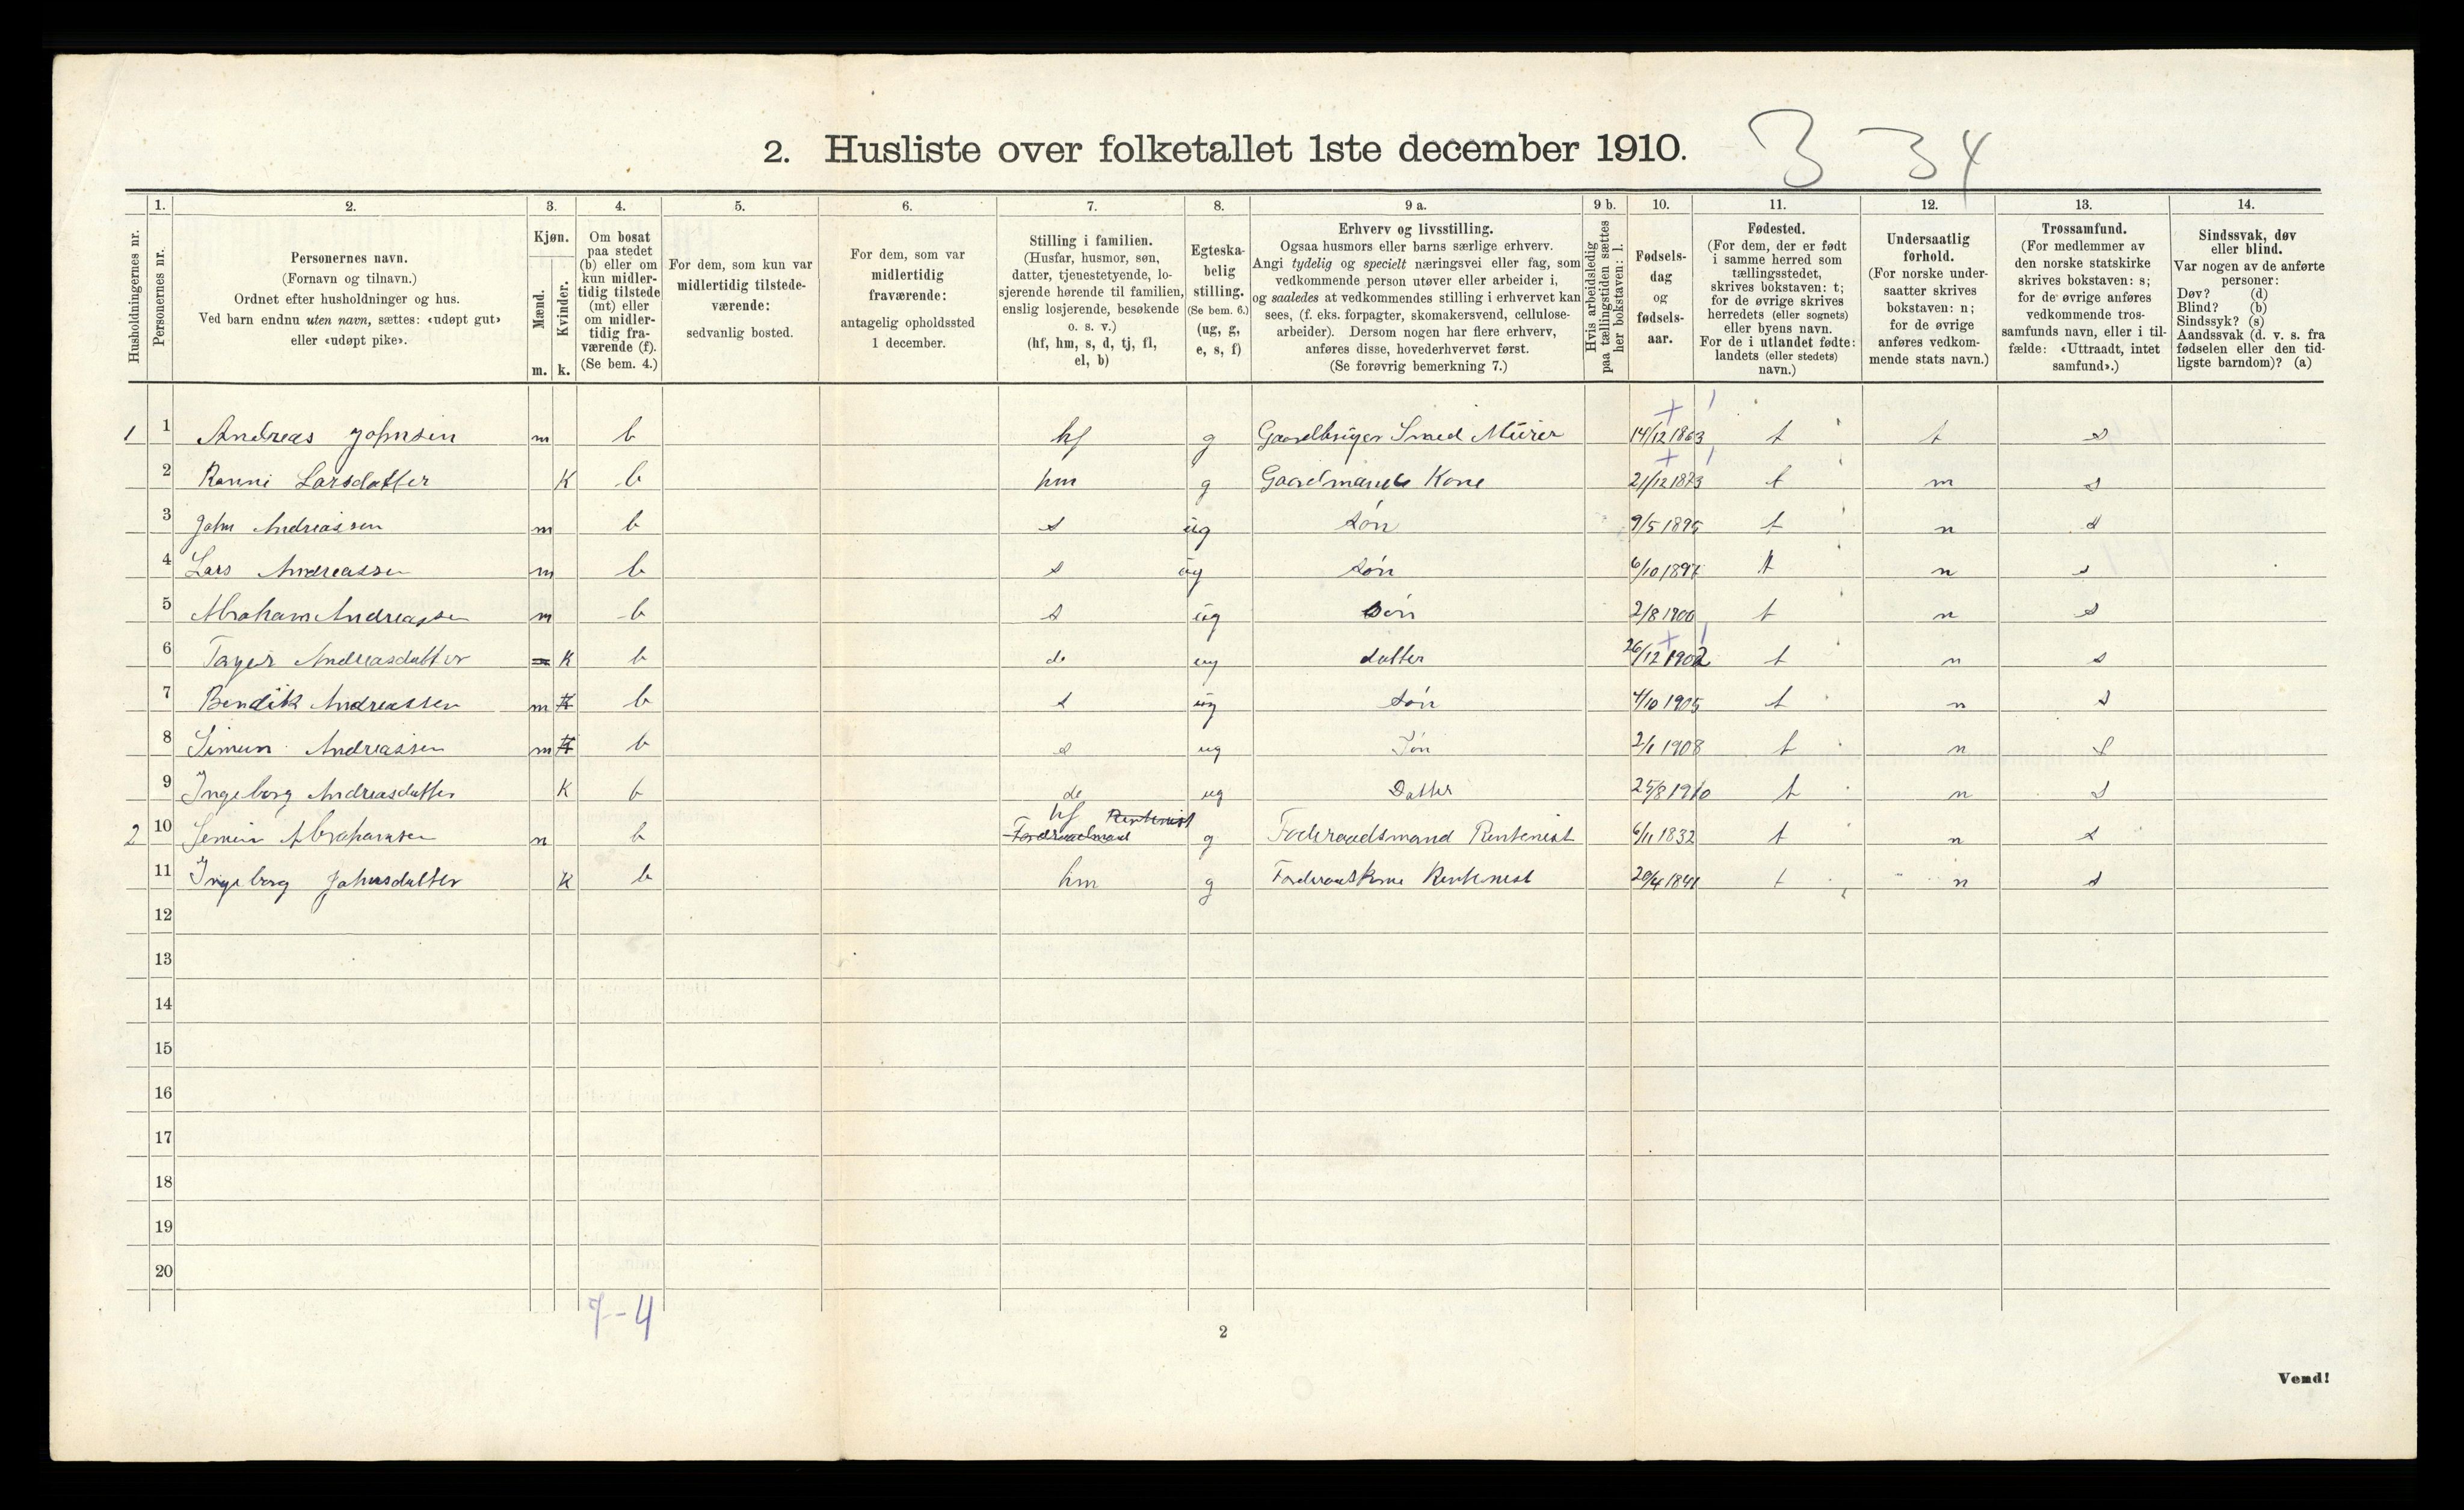 2. Husliste over folketallet 1ste december 1910.
3 34
1. 2. 3. 4. 5. 6. 7. 8. 9 a. 9 b. 10. 11. 12. 13. 14.
Husholdningernes nr.
Personernes nr.
Personernes navn.
(Fornavn og tilnavn.)
Ordnet efter husholdninger og hus.
Ved barn endnu uten navn, sættes: «udøpt gut»
eller «udøpt pike».
Kjøn.
Mænd.
Kvinder.
m. k.
Om bosat
paa stedet
(b) eller om
kun midler-
tidig tilstede
(mt) eller
om midler-
tidig fra-
værende (f).
(Se bem. 4.)
For dem, som kun var
midlertidig tilstede-
værende:
sedvanlig bosted.
For dem, som var
midlertidig
fraværende:
antagelig opholdssted
1 december.
Stilling i familien.
(Husfar, husmor, søn,
datter, tjenestetyende, lo-
sjerende hørende til familien,
enslig losjerende, besøkende
o. s. v.)
(hf, hm, s, d, tj, fl,
el, b)
Egteska-
belig
stilling.
(Se bem. 6.)
(ug, g,
e, s, f)
Erhverv og livsstilling.
Ogsaa husmors eller barns særlige erhverv.
Angi tydelig og specielt næringsvei eller fag, som
vedkommende person utøver eller arbeider i,
og saaledes at vedkommendes stilling i erhvervet kan
sees, (f. eks. forpagter, skomakersvend, cellulose-
arbeider). Dersom nogen har flere erhverv,
anføres disse, hovederhvervet først.
(Se forøvrig bemerkning 7.)
Hvis arbeidsledig
paa tællingstiden sættes
her bokstaven: l.
Fødsels-
dag
og
fødsels-
aar.
Fødested.
(For dem, der er født
i samme herred som
tællingsstedet,
skrives bokstaven: t;
for de øvrige skrives
herredets (eller sognets)
eller byens navn.
For de i utlandet fødte:
landets (eller stedets)
navn.)
Undersaatlig
forhold.
(For norske under-
saatter skrives
bokstaven: n;
for de øvrige
anføres vedkom-
mende stats navn.)
Trossamfund.
(For medlemmer av
den norske statskirke
skrives bokstaven: s;
for de øvrige anføres
vedkommende tros-
samfunds navn, eller i til-
fælde: «Uttraadt, intet
samfund».)
Sindssvak, døv
eller blind.
Var nogen av de anførte
personer:
Døv? (d)
Blind? (b)
Sindssyk? (s)
Aandssvak (d. v. s. fra
fødselen eller den tid-
ligste barndom)? (a)
1 1 Andreas Johnsen m b hf g Gaardbruger Smed Murer 14/12 1863 t t s
2 Ranni Larsdatter K b hm g Gaardmands Kone 21/12 1873 t n s
3 John Andreassen m b s ug søn 9/5 1895 t n s
4 Lars Andreassen m b s ug søn 6/10 1897 t n s
5 Abraham Andreassen m b s ug søn 2/8 1900 t n s
6 Andreasdatter K b de ug datter 26/12 1902 t n s
7 Bendik Andreassen m b s ug søn 4/10 1905 t n s
8 Simun Andreassen m b s ug Søn 2/1 1908 t n s
9 Ingeborg Andreasdatter K b de ug Datter 25/8 1910 t n s
hf Rentenist
2 10 Abrahamsen m b Foderaadmand g Foderaadsmand Rentenist 6/11 1832 t n s
11 Ingeborg Johnsdatter K b hm g Foderaadskone Rentenist 20/4 1841 t n s
12
13
14
15
16
17
18
19
20
7-4
2
Vend!